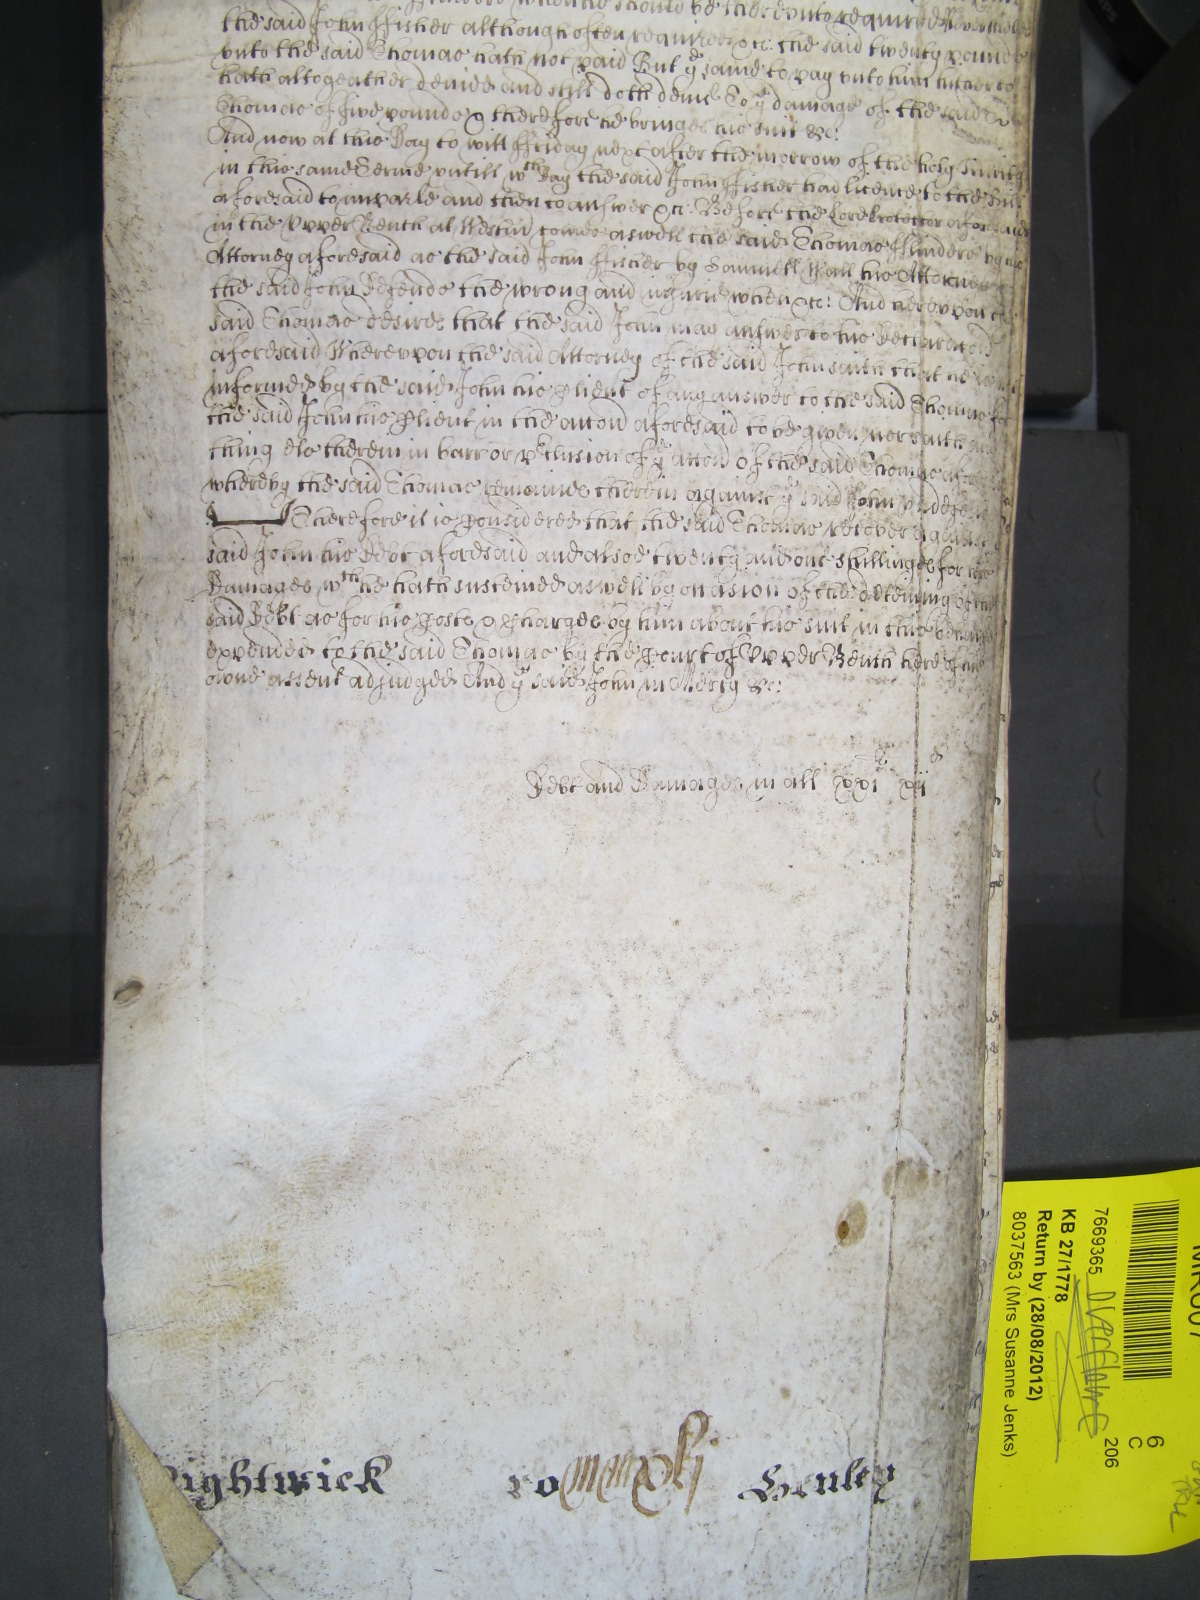 the said John Fisher although often required &c: the said twenty pounds
vnto the said Thomas hath not paid But ye same to pay vnto him hitherto
hath altogeather denied and still doth denie To ye damage of the said
Thomas of five pounds & therefore he bringes his suit &c:
And now at this Day to witt Friday next after the morrow of the holy Trinity
in this same Terme vntill wch Day the said John Fisher had licence to the bill
aforesaid to imparle and then to answer &c: Before the Lord Protector aforesaid
in the Vpper Bench at Westmr comes aswell the said Thomas by his
Attorney aforesaid as the said John Fisher by Samuell Wall his Attorney
the said John Defends the wrong and iniurie when &c: And herevpon the
said Thomas desires that the said John may answer to his Declaracon
aforesaid Wherevpon the said Attorney of the said John saith that he is not
informed by the said John his Client of any answer to the said Thomas for
the said John his Client in the accon aforesaid to be given nor saith any
thing els therein in barr or p'clusion of ye accon of the said Thomas aforesaid
whereby the said Thomas remaines therein against ye said John vndefended
Therefore it is Considered that the said Thomas recover against
said John his Debt aforesaid and alsoe twenty and one shillinges for his
Damages wch he hath susteined aswell by occasion of the deteining of the
said Debt as for his Costs & Charges by him about his suit in this behalfe
expended to the said Thomas by the Court of Vpper Bench here of his
owne assent adjudged And ye said John in Mercy &c:
Debt and Damages in all xxili xijd
ightwick ro Henley
7669365
KB 27/1778
Return by (28/08/2012)
8037563 (Mrs Susanne Jenks)
206
6
C